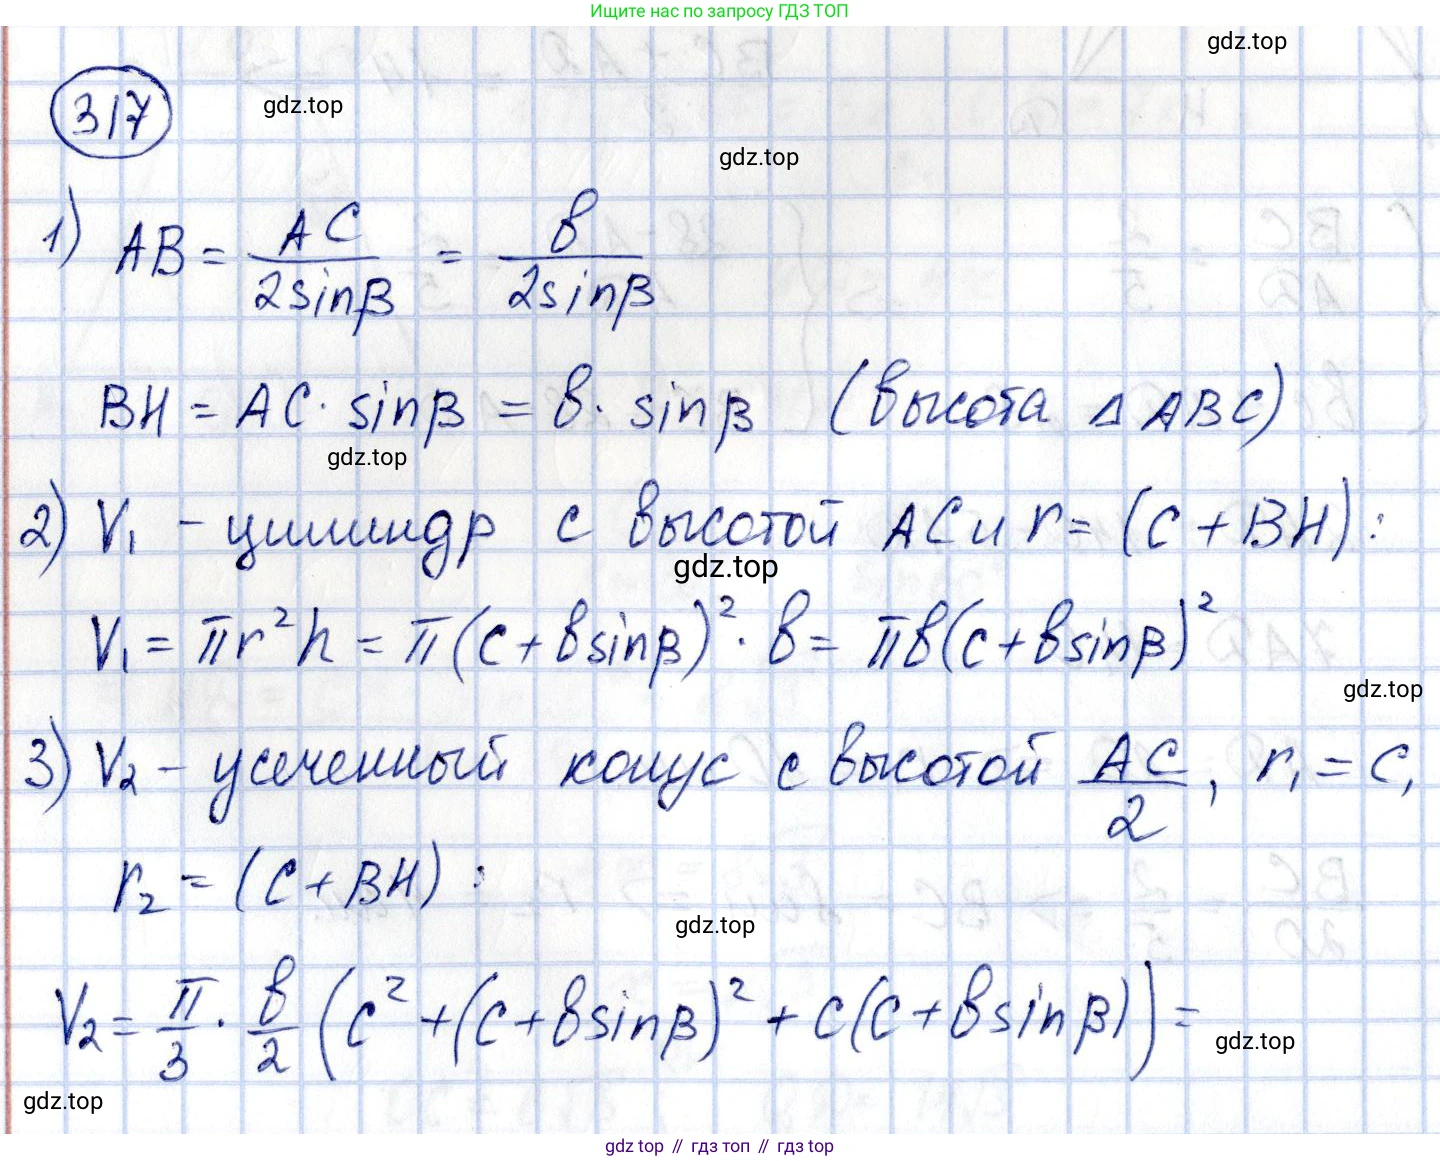 Ищите нас по запросу ГДЗ ТОП
gdz.top
317
gdz.top
gdz.top
1) AB = AC / 2sinβ = b / 2sinβ
BH = AC · sinβ = b · sinβ (высота △ ABC)
gdz.top
2) V₁ - цилиндр с высотой AC и r = (c + BH) :
gdz.top
V₁ = πr²h = π(c + b sinβ)² · b = πb(c + b sinβ)²
gdz.top
3) V₂ - усеченный конус с высотой AC / 2, r₁ = c,
r₂ = (c + BH) :
gdz.top
V₂ = π/3 · b/2 (c² + (c + b sinβ)² + c(c + b sinβ)) =
gdz.top
gdz.top
gdz top // гдз топ // gdz top